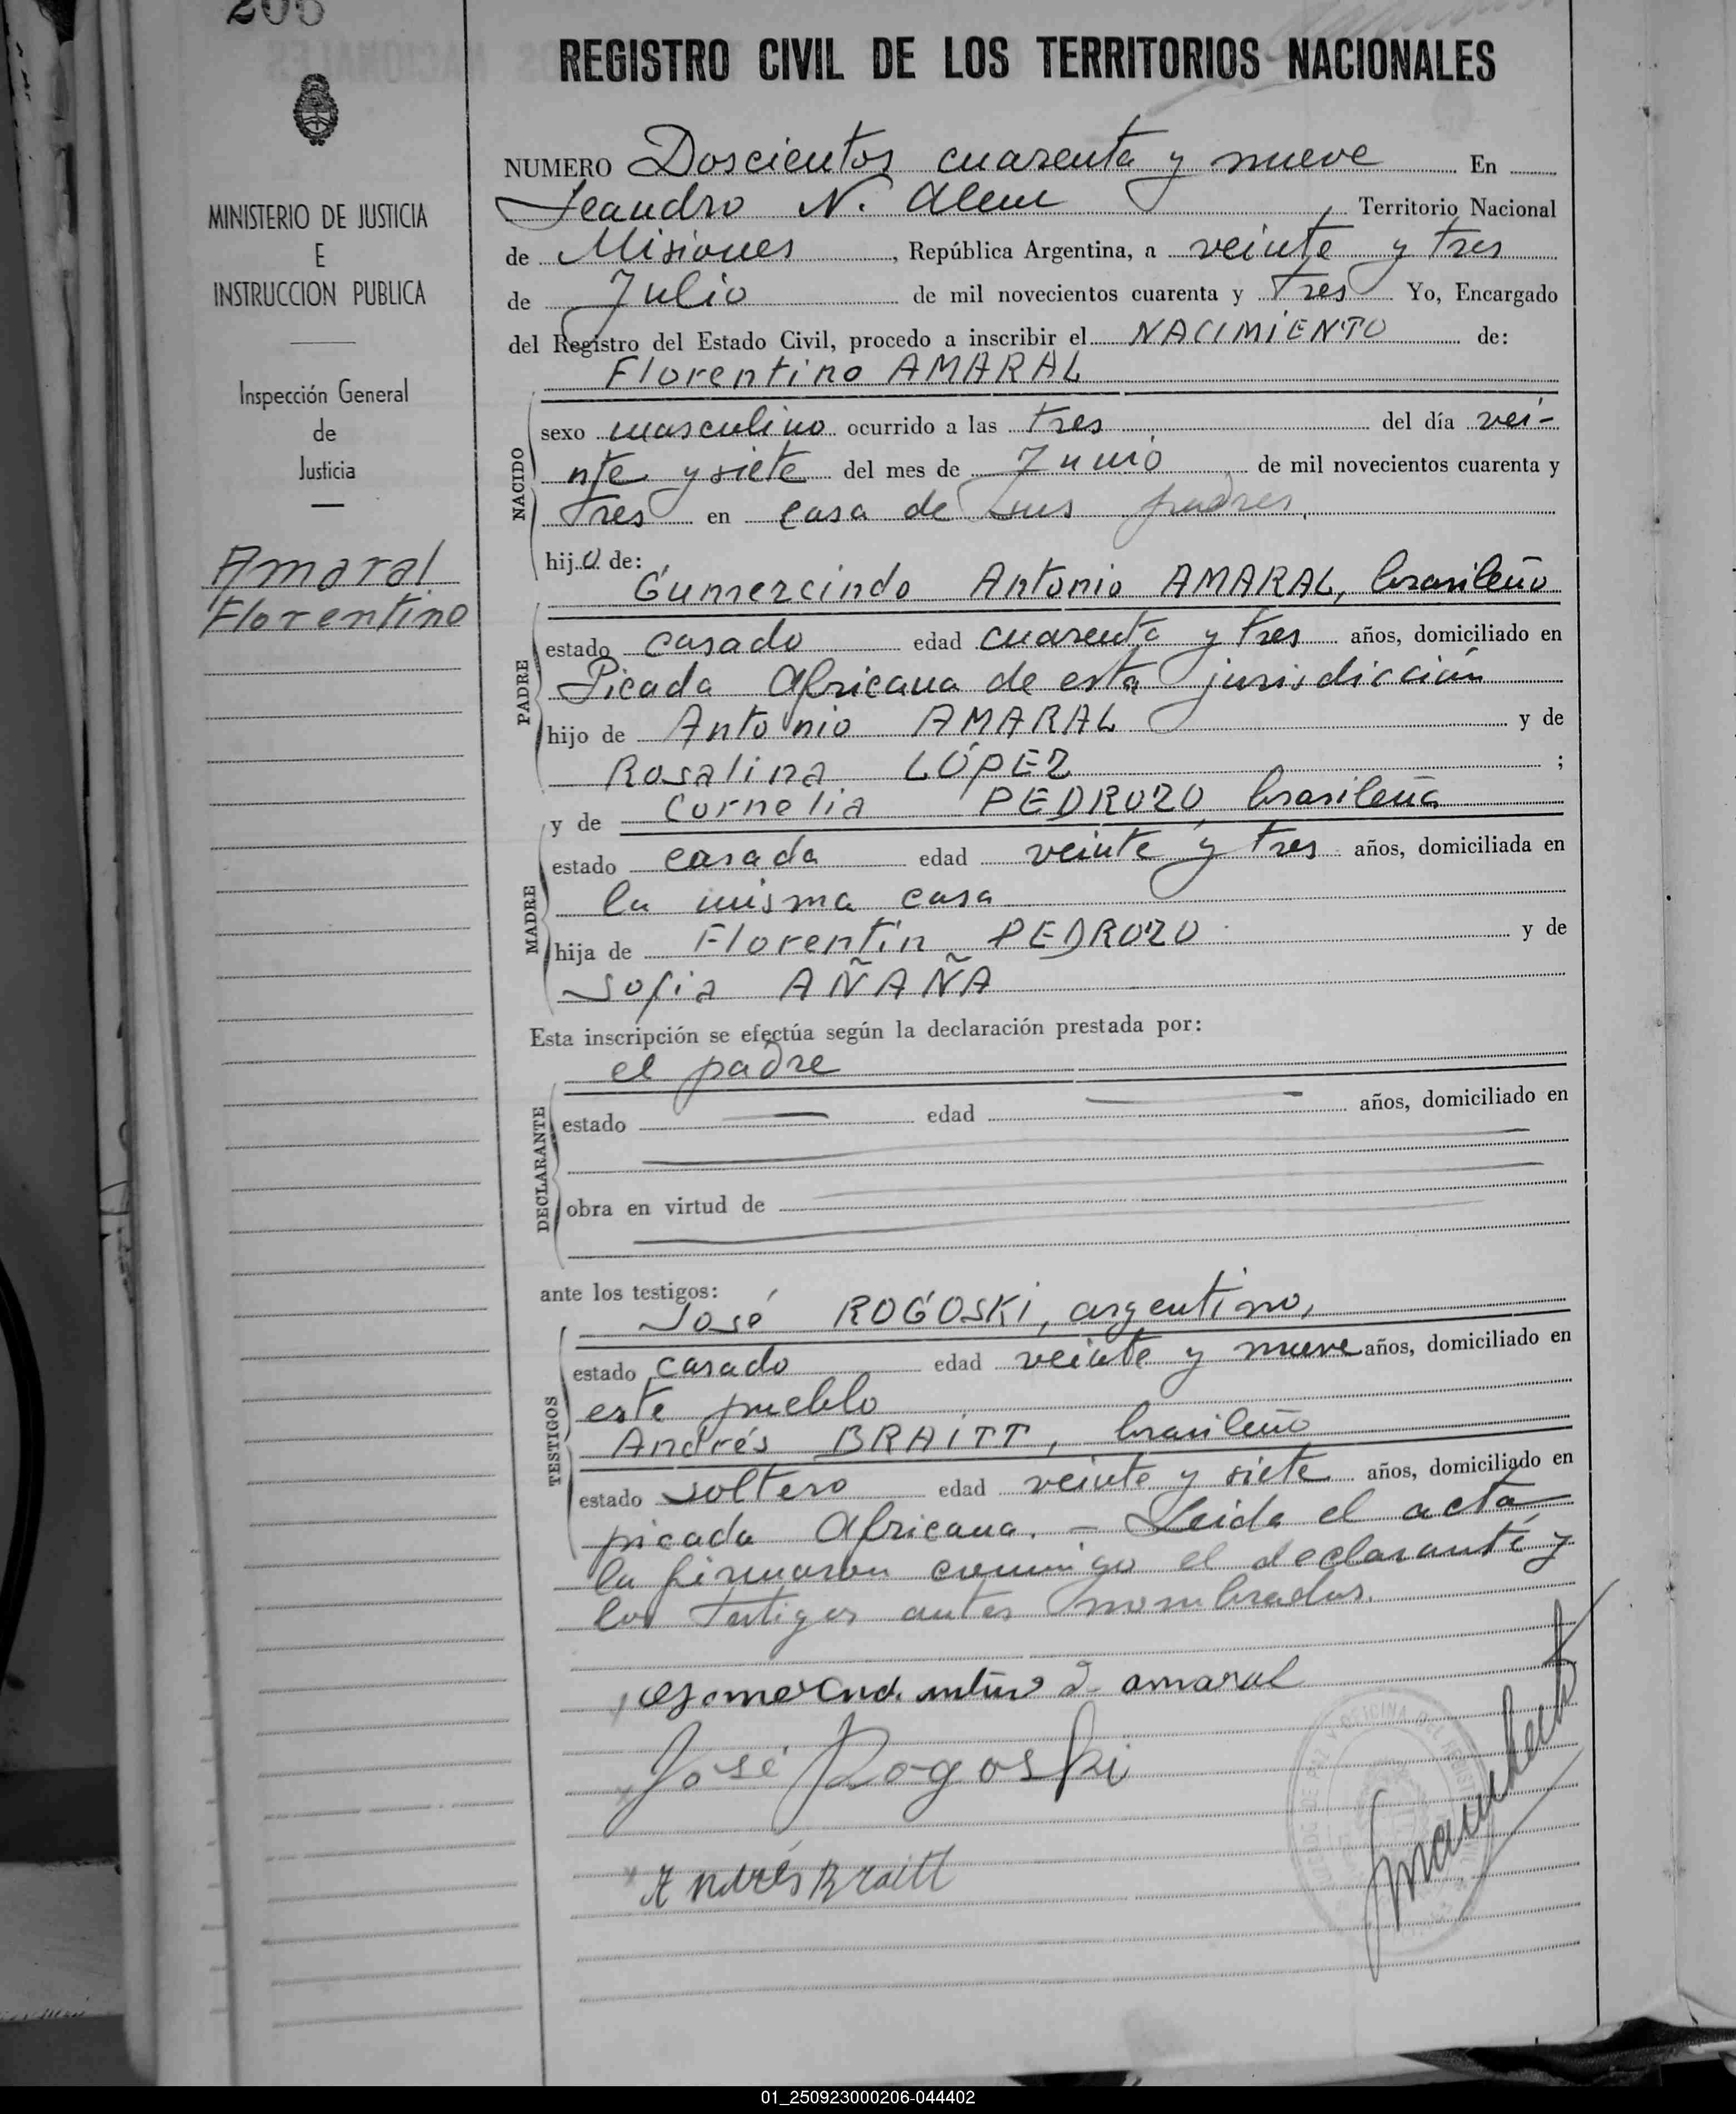 206
REGISTRO CIVIL DE LOS TERRITORIOS NACIONALES
MINISTERIO DE JUSTICIA
E
INSTRUCCION PUBLICA
Inspección General
de
Justicia
Amaral
Florentino
NUMERO Doscientos cuarenta y nueve En
Leandro N. Alem Territorio Nacional
de Misiones, República Argentina, a veinte y tres
de Julio de mil novecientos cuarenta y tres Yo, Encargado
del Registro del Estado Civil, procedo a inscribir el NACIMIENTO de:
Florentino AMARAL
NACIDO
sexo masculino ocurrido a las tres del día vei-
nte y siete del mes de Junio de mil novecientos cuarenta y
tres en casa de sus padres.
hijo de:
Gumercindo Antonio AMARAL, brasileño
PADRE
estado casado edad cuarenta y tres años, domiciliado en
Picada Africana de esta jurisdicción
hijo de Antonio AMARAL y de
Rosalina LÓPEZ ;
y de Cornelia PEDROZO, brasileña
MADRE
estado casada edad veinte y tres años, domiciliada en
la misma casa
hija de Florentín PEDROZO y de
Sofia AÑAÑA
Esta inscripción se efectúa según la declaración prestada por:
el padre
DECLARANTE
estado — edad — años, domiciliado en
obra en virtud de
ante los testigos:
José ROGOSKI, argentino,
TESTIGOS
estado casado edad veinte y nueve años, domiciliado en
este pueblo
Andrés BRAITT, brasileño
estado soltero edad veinte y siete años, domiciliado en
picada Africana. - Leida el acta
la firmaron conmigo el declarante y
los testigos antes nombrados.
amaral
José Rogoski
Andrés Braitt
01_250923000206-044402